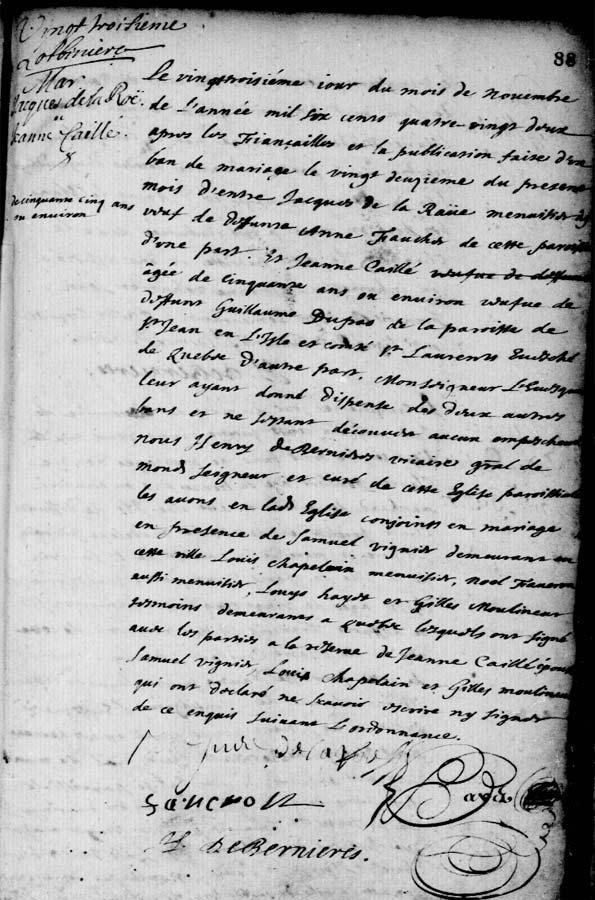 Vingt troisieme
Lotbiniere
Mar
Jacques de la Raüe
Jeanne Caillé
de cinquante cinq ans
ou environ
88
Le vingttroisiéme jour du mois de novembre
de l'année mil six cents quatre-vingt deux
apres les Fiançailles et la publication faite d'un
ban de mariage le vingt deuzieme du present
mois d'entre Jacques de la Raüe menuisier
veuf de deffunte Anne Faucher de cette paroisse
d'une part. Et Jeanne Caillé veufue de deffunt
âgée de Cinquante ans ou environ vefue de
deffunt Guillaume Dupas de la paroisse de
St Jean en L'Isle et comté St Laurents Euesché
de Quebec d'autre part. Monseigneur L'Euesque
leur ayant donné dispense des deux autres
bans et ne s'estant découvert aucun empeschement
nous Henry de Bernieres vicaire gnal de
mond Seigneur et curé de cette Eglise paroissiale
les avons en lade Eglise conjoints en mariage
en presence de Samuel vignier demeurant en
cette ville Louis Chapelain menuisier, noel Faueron
aussi menuisier, Louys hayot et Gilles Moulineur
tesmoins demeurans a Quebec lesquels ont signé
auec les parties a la reserve de Jeanne Caillé épouse
Samuel vignier, Louis Chapelain et Gilles moulineur
qui ont declaré ne sçauoir escrire ny signer
de ce enquis suivant l'ordonnance.
H. DeBernieres.